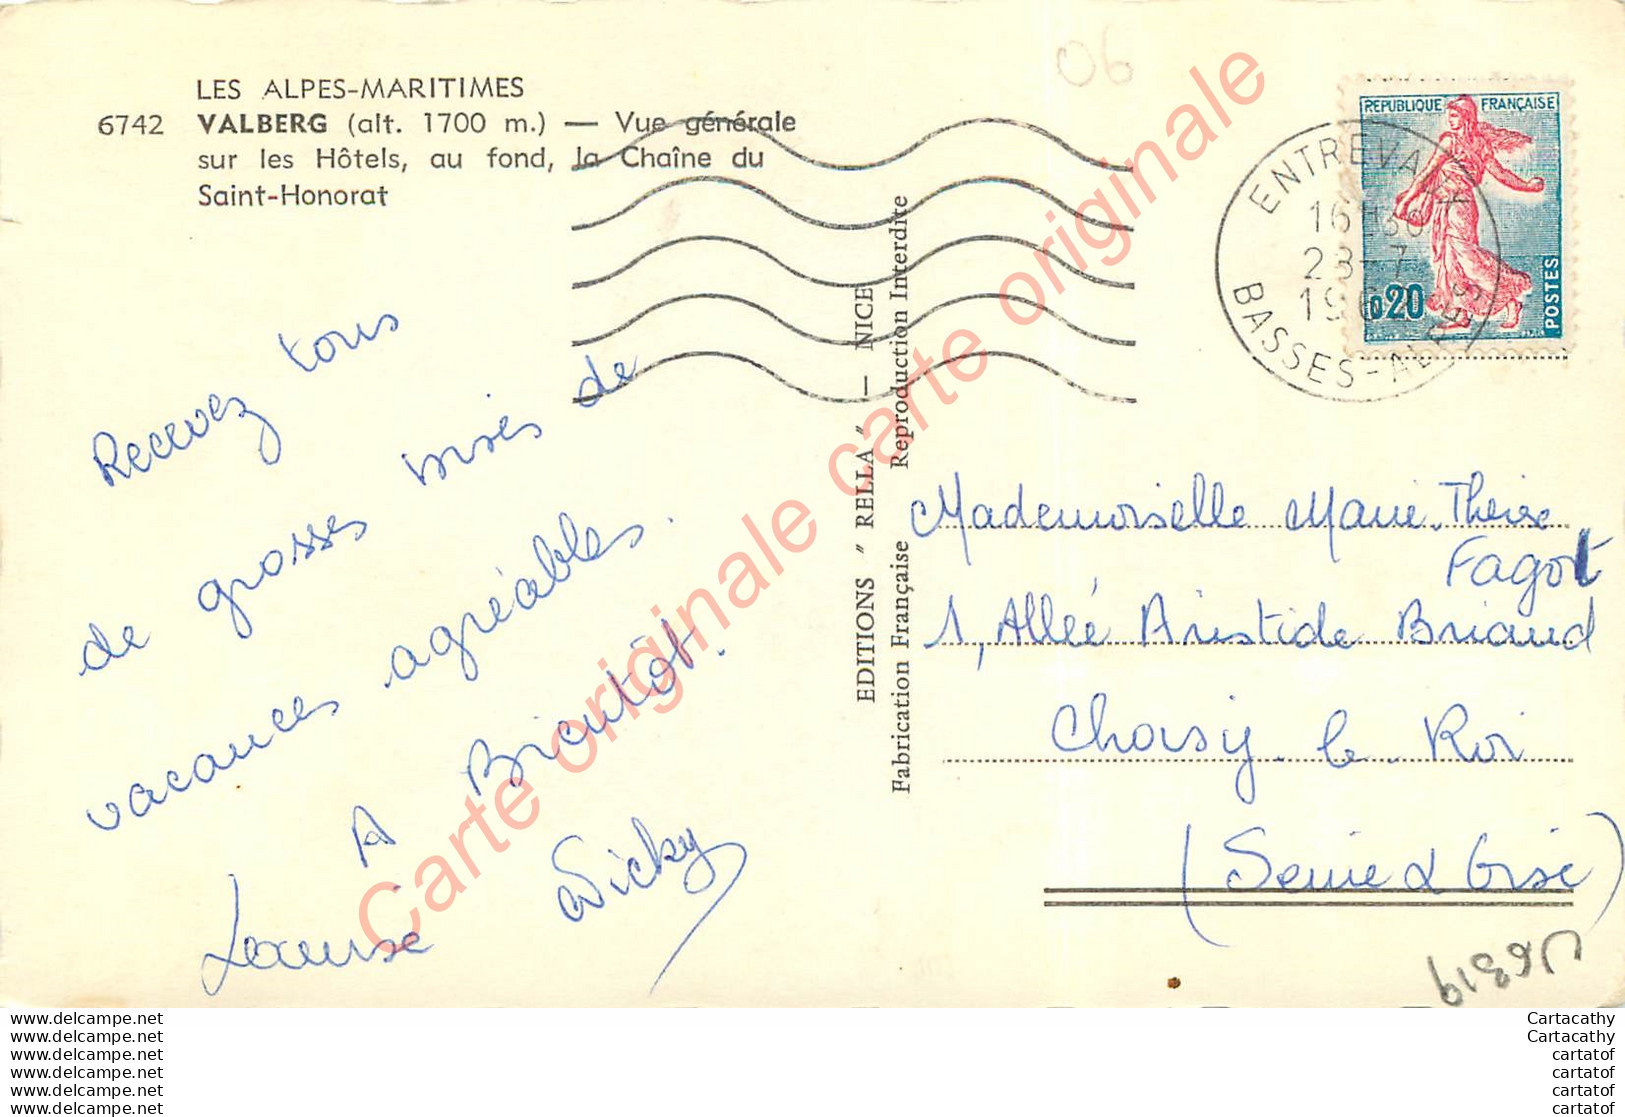 06
LES ALPES-MARITIMES
6742 VALBERG (alt. 1700 m.) — Vue générale
sur les Hôtels, au fond, la Chaîne du
Saint-Honorat
REPUBLIQUE FRANÇAISE
POSTES
0,20
ENTREVAUX
16H30
28-7
BASSES-ALPES
Recevez tous
de grosses bises de
vacances agréables.
A Bientôt.
Louise Vicky
EDITIONS " RELLA " — NICE
Fabrication Française Reproduction Interdite
Mademoiselle Marie-Thérèse
Fagot
1, Allée Aristide Briand
Choisy-le-Roi
(Seine & Oise)
V6319
Carte originale carte originale
www.delcampe.net
www.delcampe.net
www.delcampe.net
www.delcampe.net
www.delcampe.net
www.delcampe.net
Cartacathy
Cartacathy
cartatof
cartatof
cartatof
cartatof